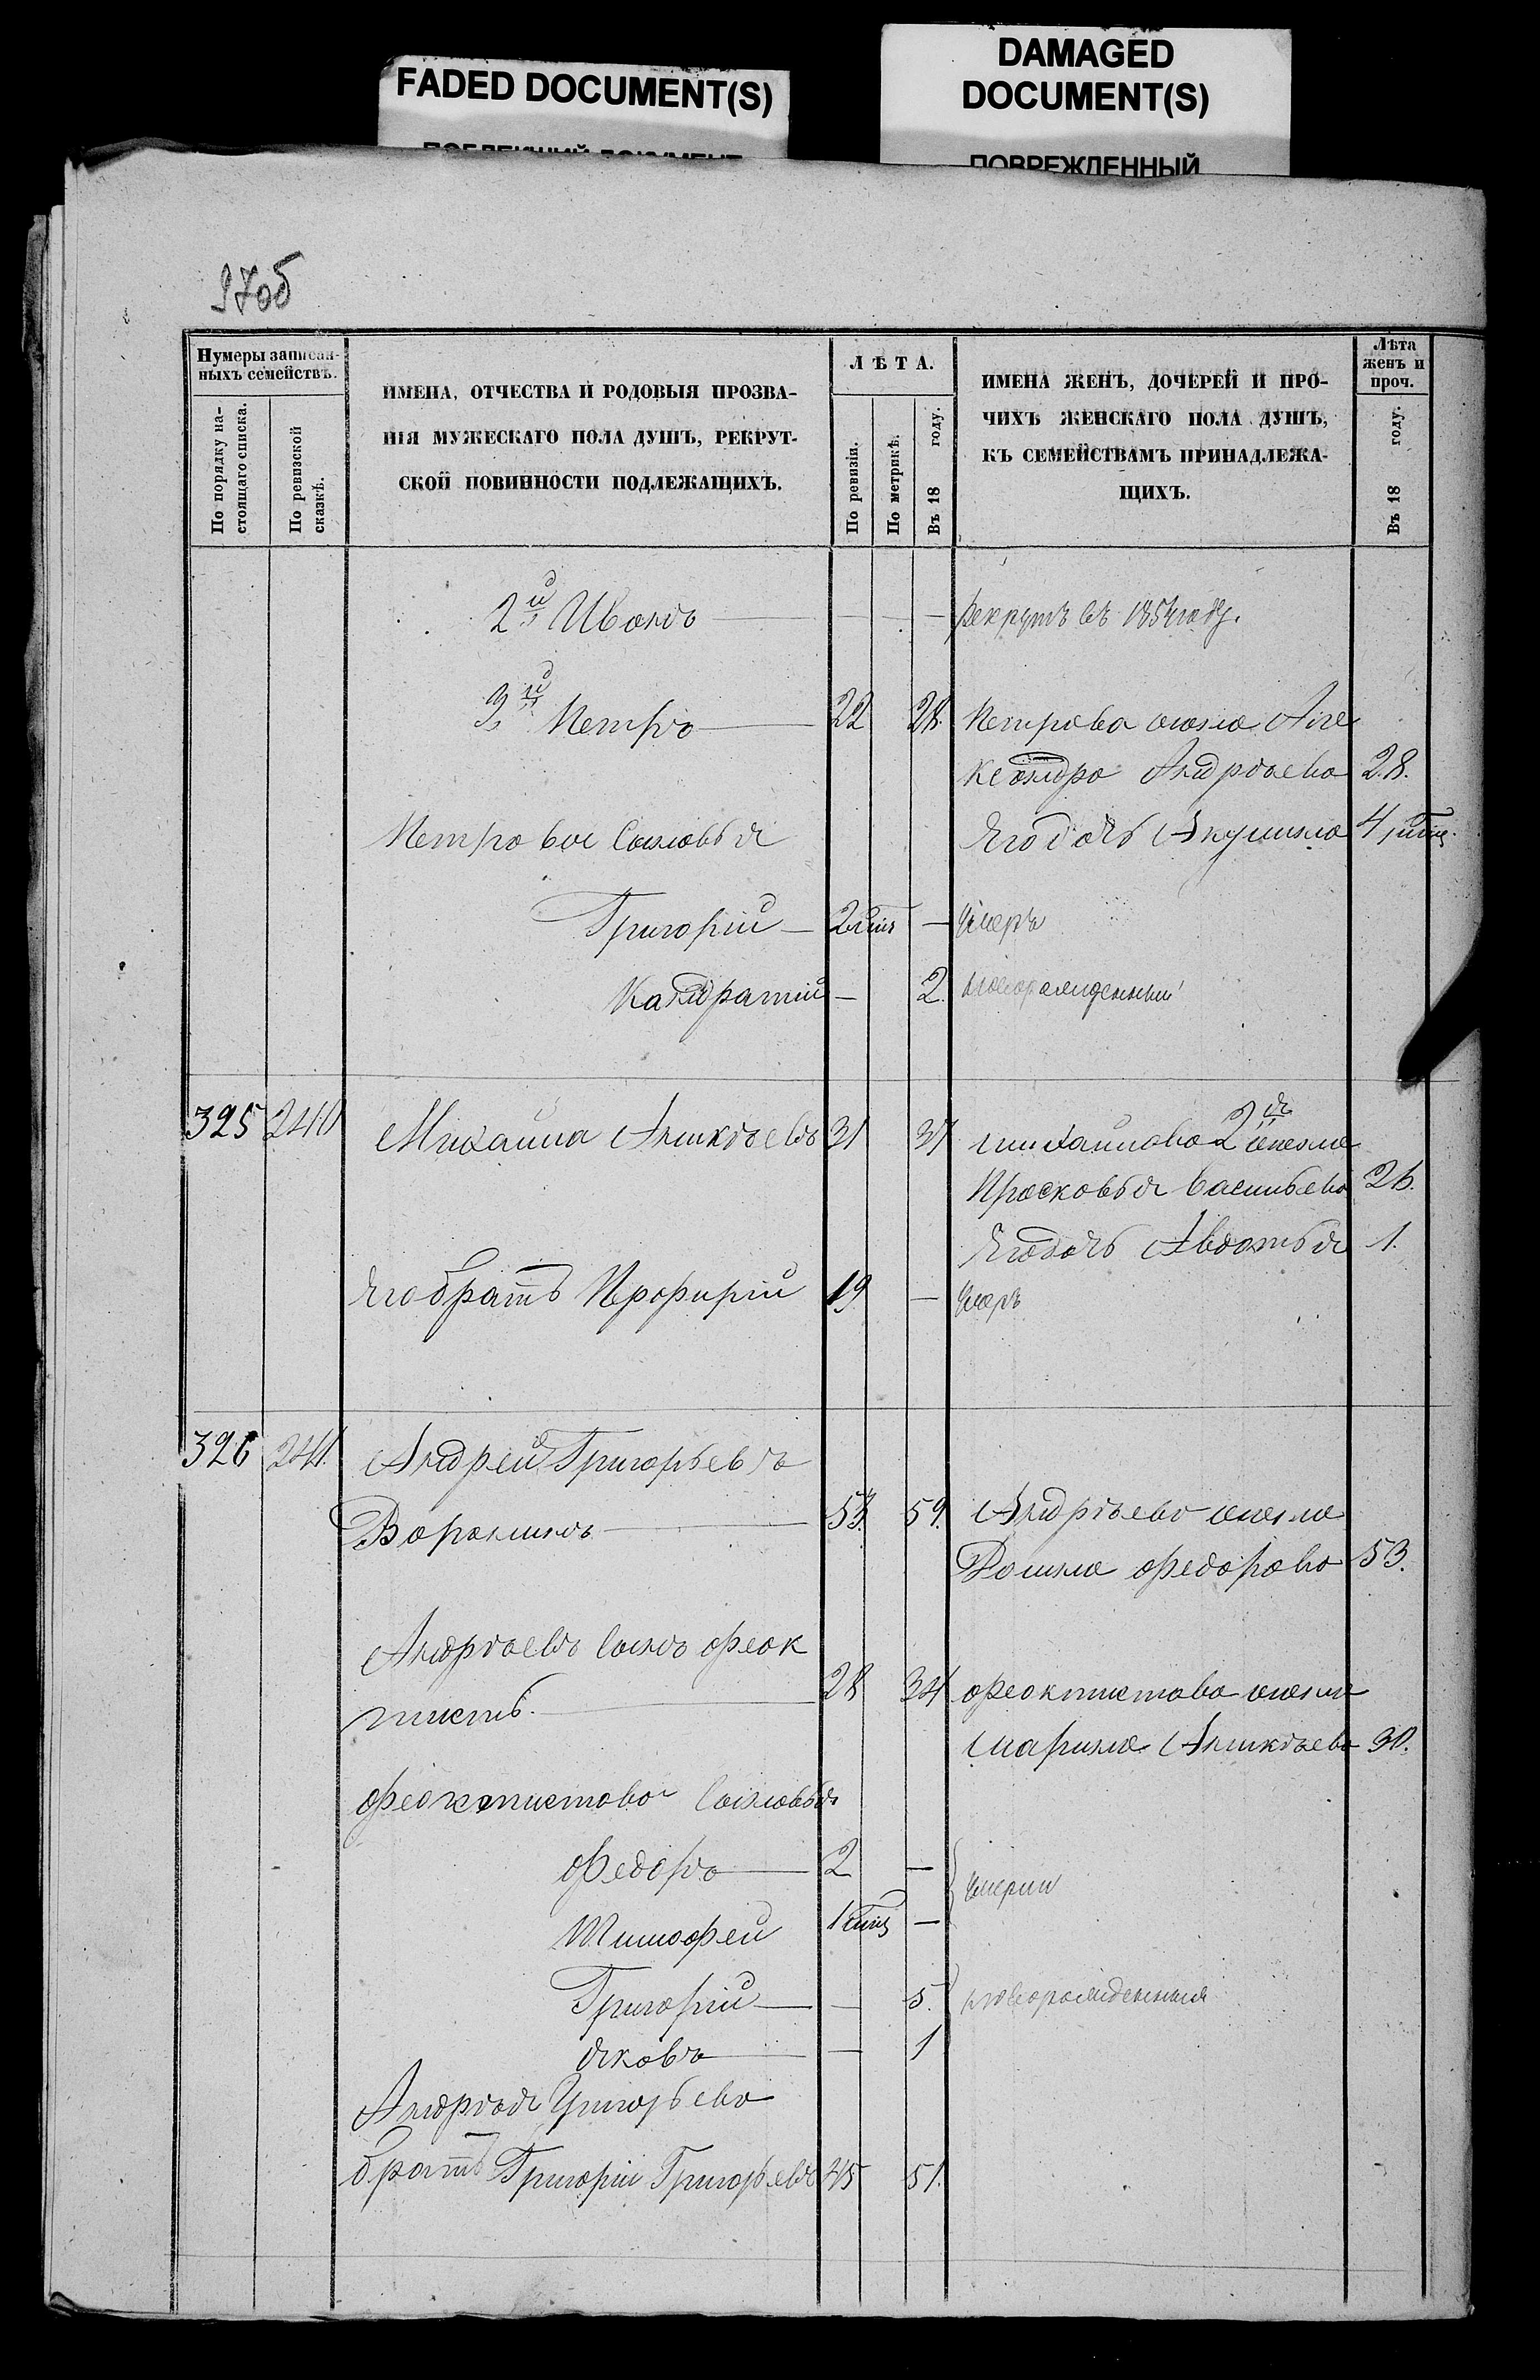 FADED DOCUMENT(S)
DAMAGED
DOCUMENT(S)
ПОВРЕЖДЕННЫЙ
97об
Нумеры записан-
ныхъ семействъ.
По порядку на-
стоящаго списка.
По ревизской
сказкѣ.
ИМЕНА, ОТЧЕСТВА И РОДОВЫЯ ПРОЗВА-
НІЯ МУЖЕСКАГО ПОЛА ДУШЪ, РЕКРУТ-
СКОЙ ПОВИННОСТИ ПОДЛЕЖАЩИХЪ.
ЛѢТА.
По ревизіи.
По метрикѣ.
Въ 18 году.
ИМЕНА ЖЕНЪ, ДОЧЕРЕЙ И ПРО-
ЧИХЪ ЖЕНСКАГО ПОЛА ДУШЪ,
КЪ СЕМЕЙСТВАМЪ ПРИНАДЛЕЖА-
ЩИХЪ.
Лѣта
женъ и
проч.
Въ 18 году.
2й Иванъ — — — рекрутъ въ 1854 году.
3й Петръ 22 28. Петрова жена Але
ксандра Андрѣева 28.
Петровы сыновья Его дочь Акулина 4
Григорій — 2 — умеръ
Кандратій — 2. новорожденный
325 240 Михаила Аникѣевъ 31 37 Михайлова 2я жена
Прасковья Васильева 26.
Его дочь Авдотья 1.
Его братъ Профирій 19 — умеръ
326 241. Андрей Григорьевъ
Воронинъ 53. 59. Андрѣева жена
Домна Федорова 53.
Андрѣевъ сынъ Феок
тистъ. 28 34 Феоктистова жена
Марина Аникѣева 30.
Феоктистовы сыновья
Федоръ 2 —
умерли
Тимофей 1 —
Григорій — 5. новорожденныя
Яковъ — 1
Андрѣя Григорьева
братъ Григорій Григорьевъ 45 51.